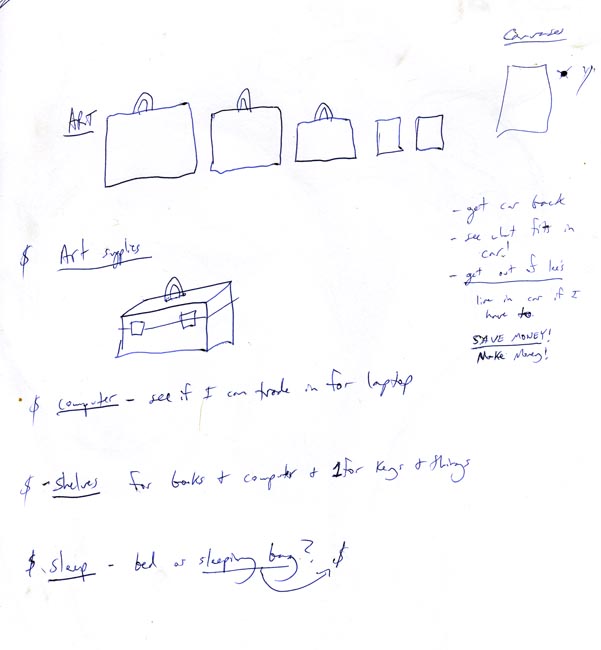 Canvases
ART
- get car back
- see what fits in
car!
- get out of lee's
live in car if I
have to.
SAVE MONEY!
Make Money!
$ Art supplies
$ computer - see if I can trade in for laptop
$ - shelves for books + computer + 1 for keys + things
$. sleep - bed or sleeping bag? $